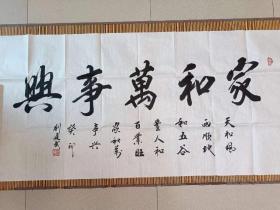 家和萬事興
天和風
雨順地
和五谷
豐人和
百業旺
家和萬
事興
癸卯